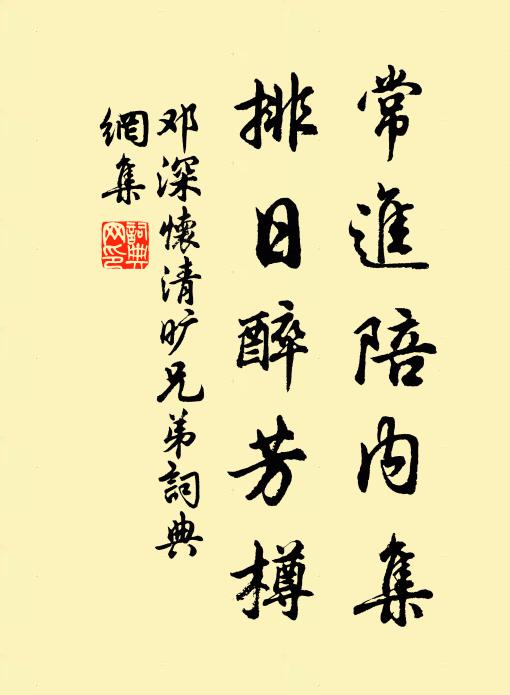 常進陪内集
排日醉芳樽
邓深懷清旷兄弟詞典
網集
詞典网印